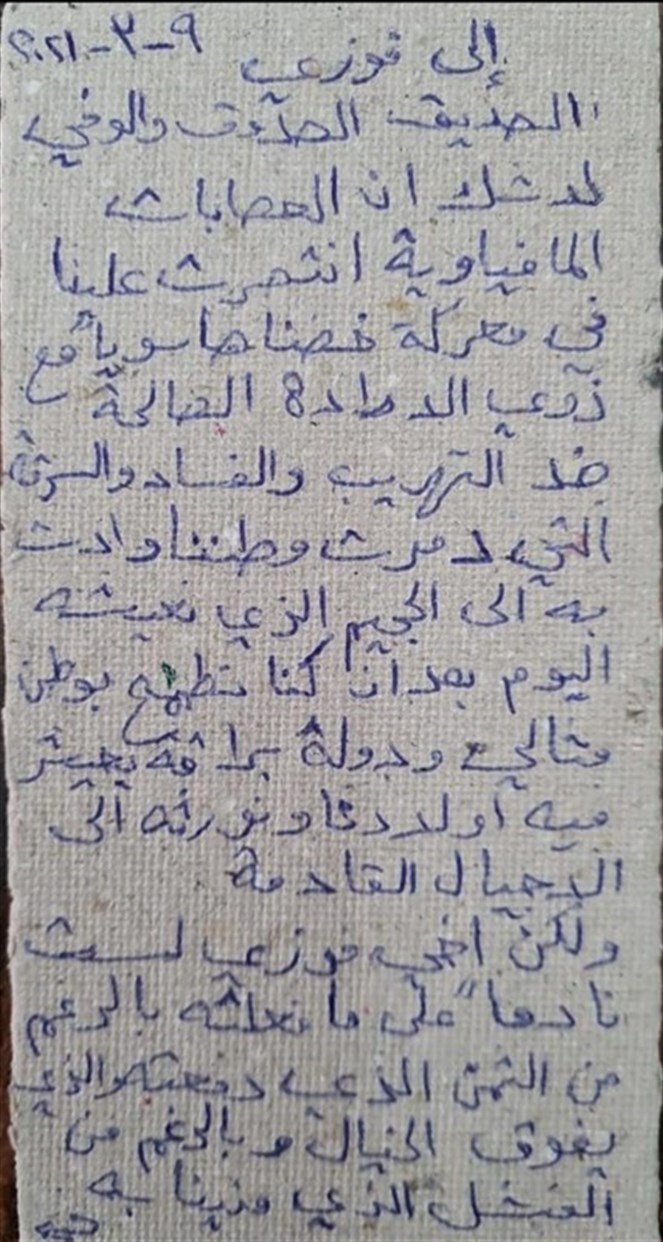 إلى فوزي ٩-٣-٢٠٢١
الصديق الصدوق والوفي
لا شك ان العصابات
المافياوية انتصرت علينا
في معركة خضناها سوياً مع
ذوي الارادة الصالحة
ضد التهريب والفساد والسرقة
التي دمرت وطننا وادت
به الى الجحيم الذي نعيشه
اليوم بعد ان كنا نطمح بوطن
مثالي ودولة براقة يعيش
فيه اولادنا ونورثه الى
الاجيال القادمة.
ولكن اخي فوزي لست
نادماً على ما فعلته بالرغم
من الثمن الذي دفعته والذي
يفوق الخيال وبالرغم من
الفشل الذي منينا به